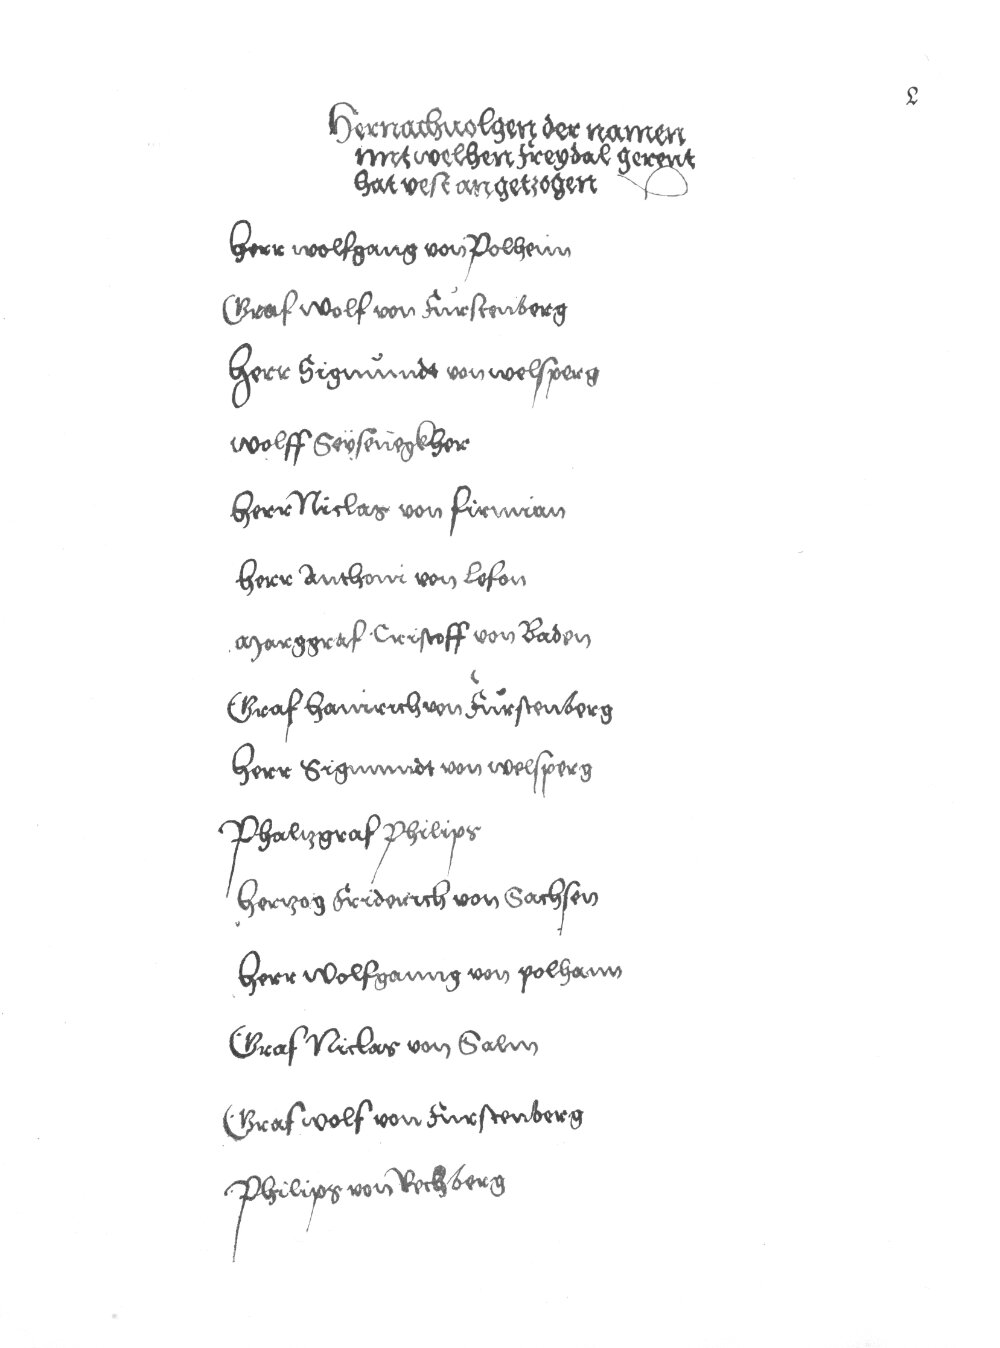 L
Hernachuolgen der namen
mit welhen Freydal gerent
hat vest angetzogen
Herr wolfgang von Polheim
Graf Wolf von Fürstenberg
Herr Sigmundt von welsperg
Wolff Seÿsenegkher
Herr Niclas von firmian
Herr Anthoni von Lefon
Marggraf Cristoff von Baden
Graf Hainrich von Fürstenberg
Herr Sigmundt von welsperg
Phaltzgraf Philips
Hertzog Friderich von Sachsen
Herr Wolfganng von polhaim
Graf Niclas von Salm
Graf wolf von Furstenberg
Philips von Rechberg